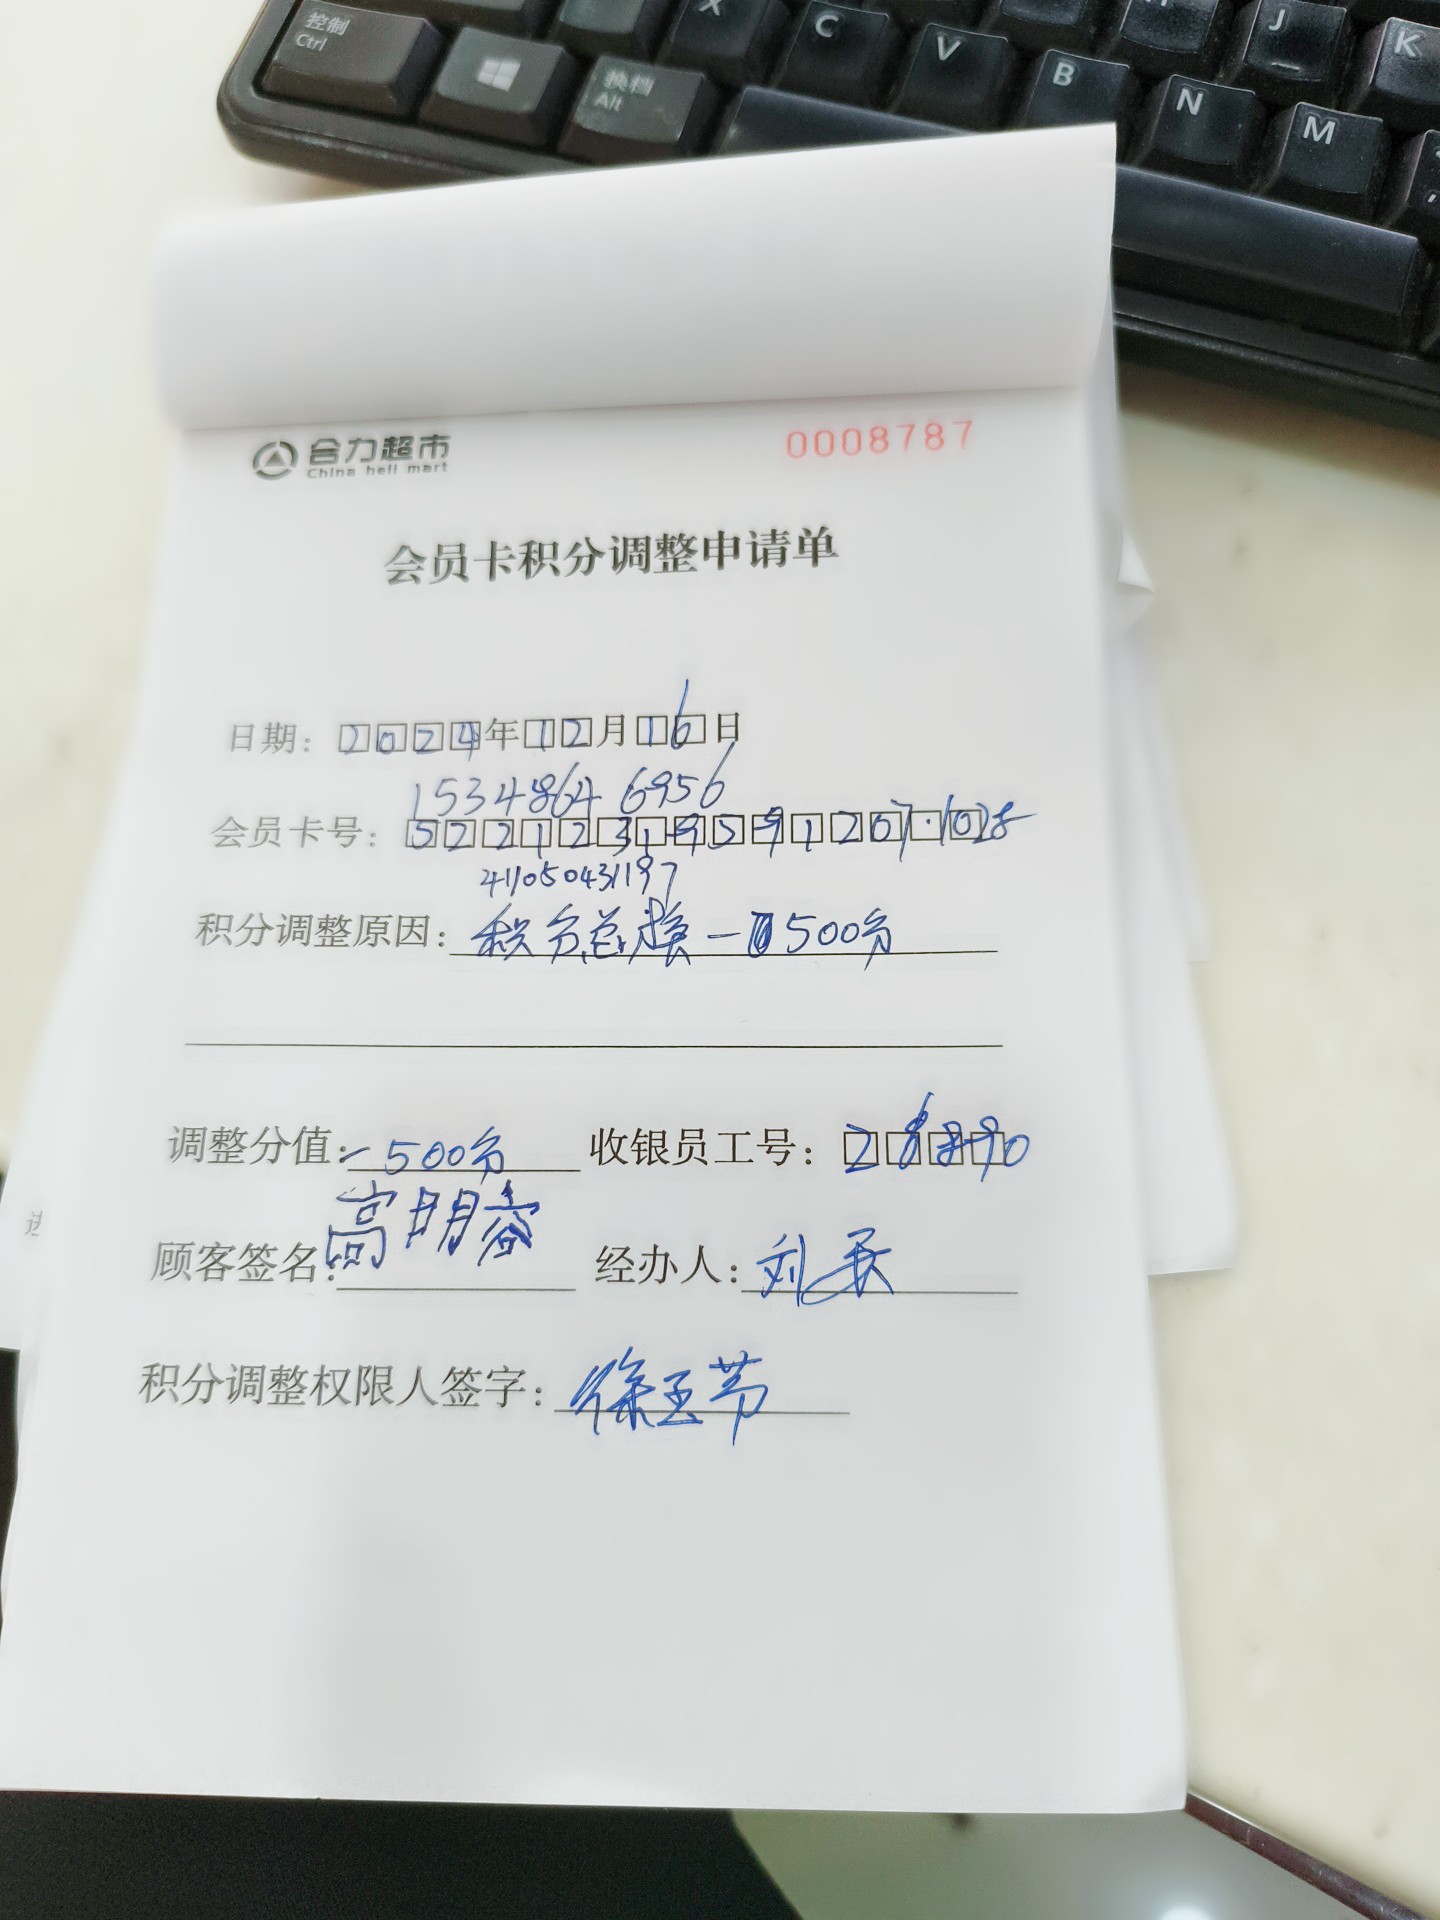 控制
Ctrl
换档
Alt
X C V B N M J K
合力超市
China heli mart
0008787
会员卡积分调整申请单
日期：2024年12月16日
15348646956
会员卡号：
411050431197
积分调整原因：积分兑换-500分
调整分值：-500分 收银员工号：
顾客签名：高明容 经办人：刘
积分调整权限人签字：徐玉芳